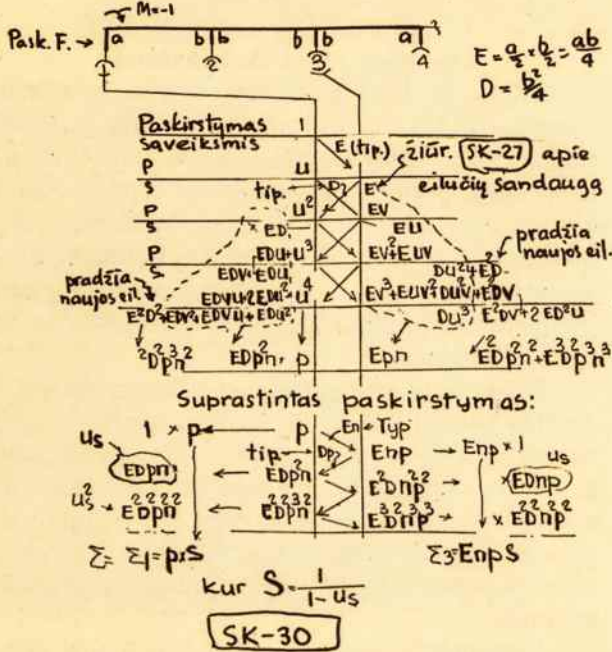 M=-1
Pask. F. → a b b b b a
1 2 3 4
E = a/2 × b/2 = ab/4
D = b²/4
Paskirstymas 1
saveiksmis E (tip.) žiūr. SK-27 apie
P u eilučių sandaugą
s tip. D? E
P u² EV
s ED EU
P EDU+u³ EV²+EUV pradžia
s EDV+EDU DU²+ED² naujos eil.
pradžia EDVU+2EDU² u⁴ EV³+EUV²+DU²V+EDV
naujos eil. E²D²+EDV²+EDVU+EDU² DU³ E²DV+2ED²U
E²D²p³n² EDp²n, p Epn E²Dp²n²+E³D²p³n³
Suprastintas paskirstymas:
us 1 × p ← p En ← Typ
tip. Dp Enp → Enp × 1 us
EDpn ← EDp²n E²Dn²p² → × EDnp
us² → E²D²p²n² ← E²D²p³n² E³D²n³p³ → × E²D²n²p²
Σ= Σ1=p×S Σ3=EnpS
kur S = 1/(1-us)
SK-30